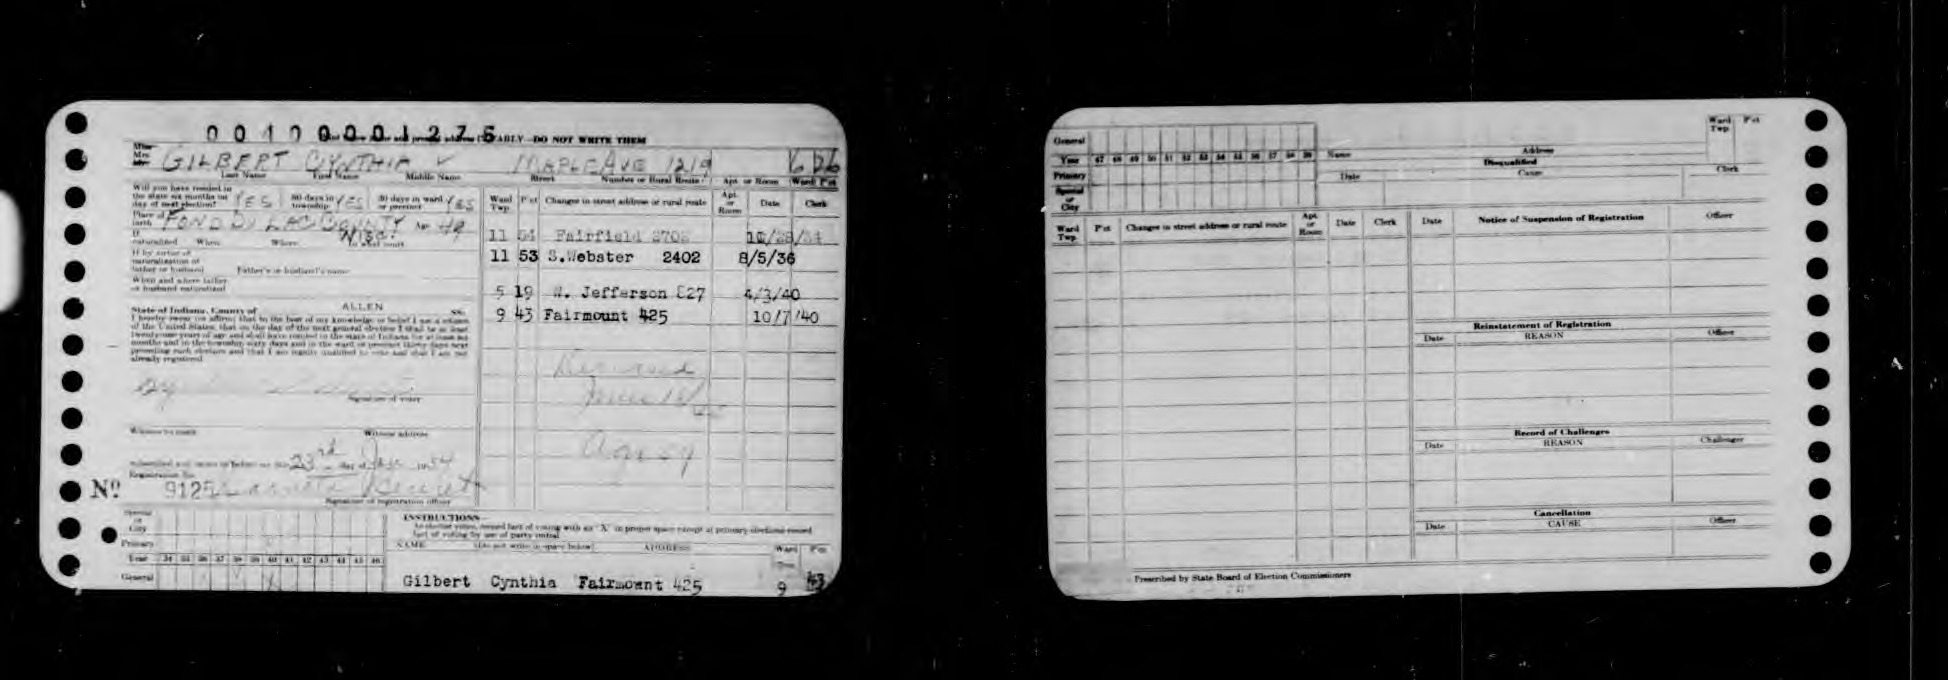 001000001275 EARLY—DO NOT WRITE THEM
Miss
Mrs.
Mr.
GILBERT CYNTHIA V MAPLE AVE 1219 6 26
Last Name First Name Middle Name Street Number or Rural Route Apt. or Room Ward Pct
Will you have resided in
the state six months on YES 60 days in YES 30 days in ward YES
day of next election? township or precinct
Place of FOND DU LAC COUNTY Age 49
birth WISC.
If
naturalized When Where In what court
If by virtue of
naturalization of
father or husband Father's or husband's name
When and where father
or husband naturalized
State of Indiana, County of ALLEN SS:
I hereby swear (or affirm) that to the best of my knowledge or belief I am a citizen
of the United States, that on the day of the next general election I shall be at least
twenty-one years of age and shall have resided in the state of Indiana for at least six
months and in the township sixty days and in the ward or precinct thirty days next
preceding such election and that I am legally qualified to vote and that I am not
already registered.
Signature of voter
Witness to mark Witness' address
Subscribed and sworn to before me this 23rd day of 1934
Registration No.
No 9125
Signature of registration officer
Ward Twp. P'ct Changes in street address or rural route Apt. or Room Date Clerk
11 54 Fairfield 2702 10/28/34
11 53 S.Webster 2402 8/5/36
5 19 W. Jefferson 827 4/3/40
9 43 Fairmount 425 10/7/40
Deceased
June 18/
Age 54
Special
or
City
Primary
Year 34 35 36 37 38 39 40 41 42 43 44 45 46
General
INSTRUCTIONS
As elector votes, record fact of voting with an "X" in proper space except at primary elections record
fact of voting by use of party initial
NAME (Do not write in space below) ADDRESS Ward Twp. P'ct
Gilbert Cynthia Fairmount 425 9 43
General
Year 47 48 49 50 51 52 53 54 55 56 57 58 59
Primary
Special
or
City
Ward Twp. P'ct
Name Address
Disqualified
Date Cause Clerk
Ward Twp. P'ct Changes in street address or rural route Apt. or Room Date Clerk
Date Notice of Suspension of Registration Officer
Reinstatement of Registration
Date REASON Officer
Record of Challenges
Date REASON Challenger
Cancellation
Date CAUSE Officer
Prescribed by State Board of Election Commissioners